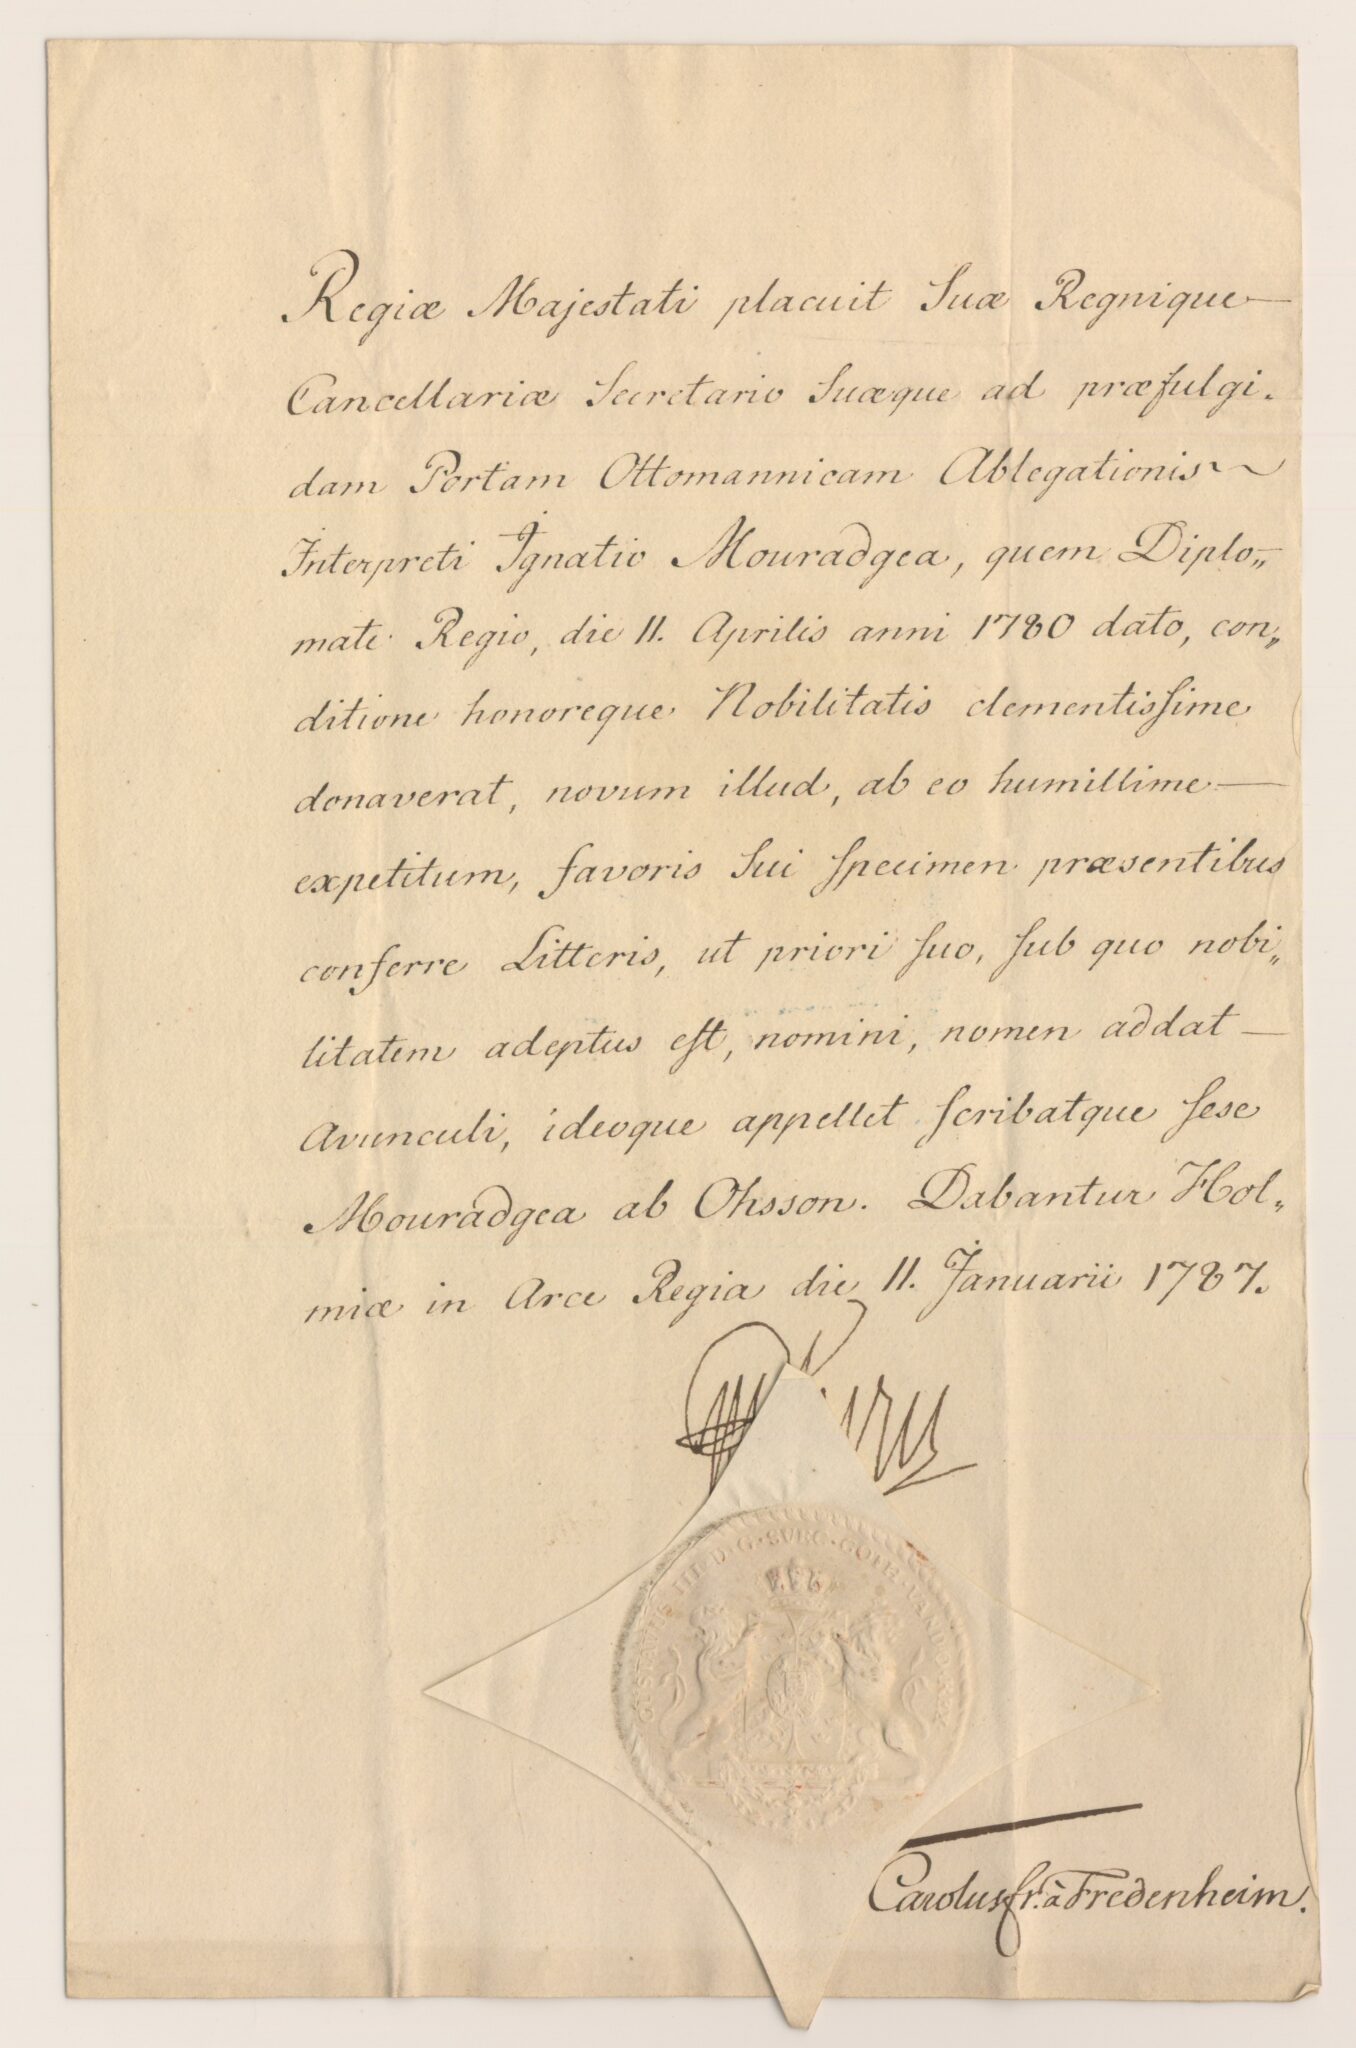 Regiæ Majestati placuit Suæ Regnique
Cancellariæ Secretario Suæque ad præfulgi-
dam Portam Ottomannicam Ablegationis
Interpreti Ignatio Mouradgea, quem Diplo„
mate Regio, die 11. Aprilis anni 1780 dato, con„
ditione honoreque Nobilitatis clementissime
donaverat, novum illud, ab eo humillime
expetitum, favoris Sui specimen præsentibus
conferre Litteris, ut priori suo, sub quo nobi„
litatem adeptus est, nomini, nomen addat
Avunculi, ideoque appellet scribatque sese
Mouradgea ab Ohsson. Dabantur Hol„
miæ in Arce Regia die 11. Januarii 1787.
GUSTAVUS III D.G. SVEC. GOTH. VAND. REX
Carolus fr. à Fredenheim.